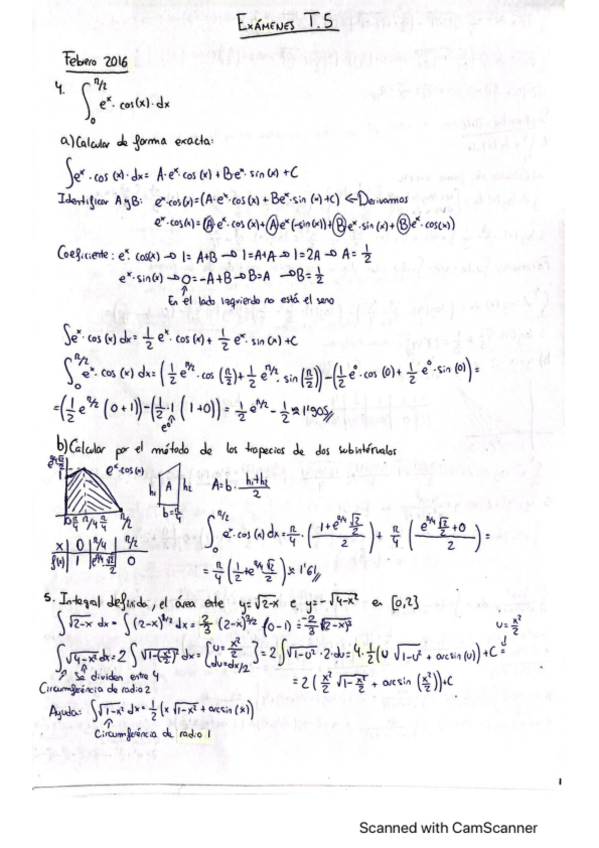 EXÁMENES T.5
Febrero 2016
4. ∫₀^(π/2) e^x · cos(x) · dx
a) Calcular de forma exacta:
∫e^x · cos(x) · dx = A · e^x · cos(x) + B e^x · sin(x) + C
Identificar A y B: e^x · cos(x) = (A · e^x · cos(x) + B e^x · sin(x) + C) ← Derivamos
e^x · cos(x) = A e^x · cos(x) + A e^x (-sin(x)) + B e^x · sin(x) + B e^x · cos(x))
Coeficiente: e^x · cos(x) → 1 = A+B → 1 = A+A → 1 = 2A → A = 1/2
e^x · sin(x) → 0 = -A+B → B = A → B = 1/2
En el lado izquierdo no está el seno
∫e^x · cos(x) dx = 1/2 e^x · cos(x) + 1/2 e^x · sin(x) + C
∫₀^(π/2) e^x · cos(x) dx = (1/2 e^(π/2) · cos(π/2) + 1/2 e^(π/2) · sin(π/2)) - (1/2 e^0 · cos(0) + 1/2 e^0 · sin(0)) =
= (1/2 e^(π/2) (0+1)) - (1/2 · 1 (1+0)) = 1/2 e^(π/2) - 1/2 ≈ 1'905
e^0
b) Calcular por el método de los trapecios de dos subintérvalos
e^(π/4) √2/2
1
e^x · cos(x)
h₁ h₂ A = b · (h₁+h₂)/2
b = π/4
0 π/4 π/4 π/2
∫₀^(π/2) e^x · cos(x) dx = π/4 · ((1 + e^(π/4) √2/2)/2) + π/4 ((e^(π/4) √2/2 + 0)/2) =
x | 0 | π/4 | π/2
f(x) | 1 | e^(π/4) √2/2 | 0
= π/4 (1/2 + e^(π/4) √2/2) ≈ 1'61
5. Integral definida, el área entre y = √2-x e y = -√4-x² en [0,2]
∫√2-x dx = ∫(2-x)^(1/2) dx = -2/3 (2-x)^(3/2) (0-1) = -2/3 √(2-x)³
u = x²/2
∫√4-x² dx = 2∫√1-(x/2)² dx = {u = x/2, du = dx/2} = 2∫√1-u² · 2 · du = 4 · 1/2 (u √1-u² + arcsin(u)) + C =
Se dividen entre 4
= 2 (x²/2 √1-x²/2 + arcsin(x²/2)) + C
Circumferéncia de radio 2
Ayuda: ∫√1-x² dx = 1/2 (x √1-x² + arcsin(x))
Circumferéncia de radio 1
1
Scanned with CamScanner